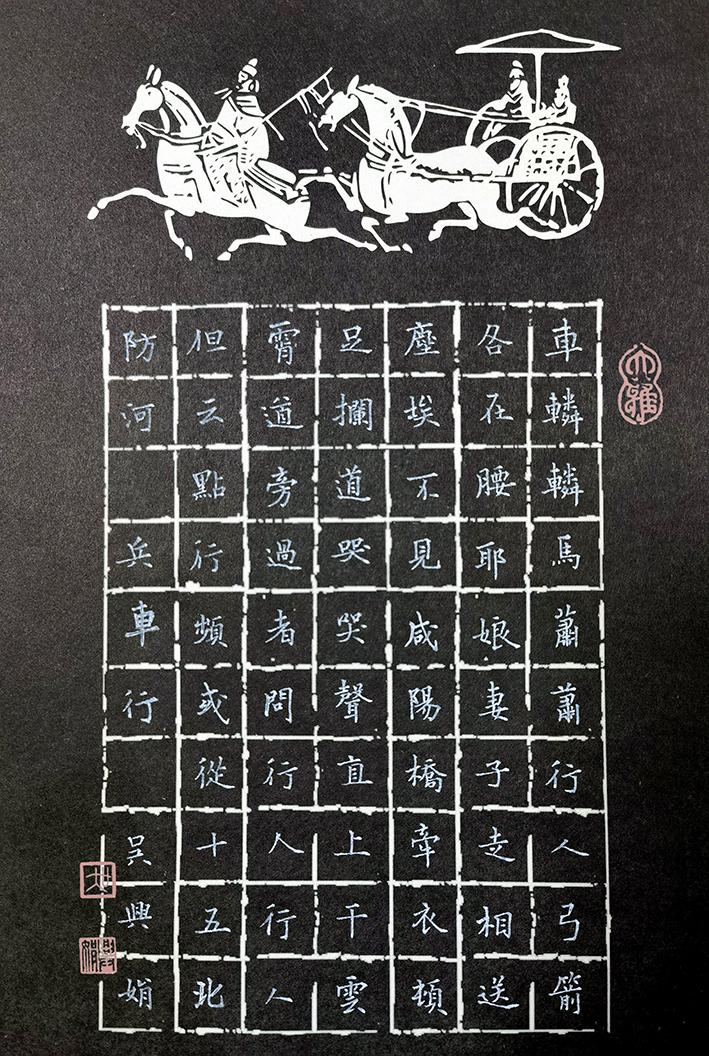 車轔轔馬蕭蕭行人弓箭
各在腰耶娘妻子走相送
塵埃不見咸陽橋牽衣頓
足攔道哭哭聲直上干雲
霄道旁過者問行人行人
但云點行頻或從十五北
防河 兵車行 吳興娟
大雅